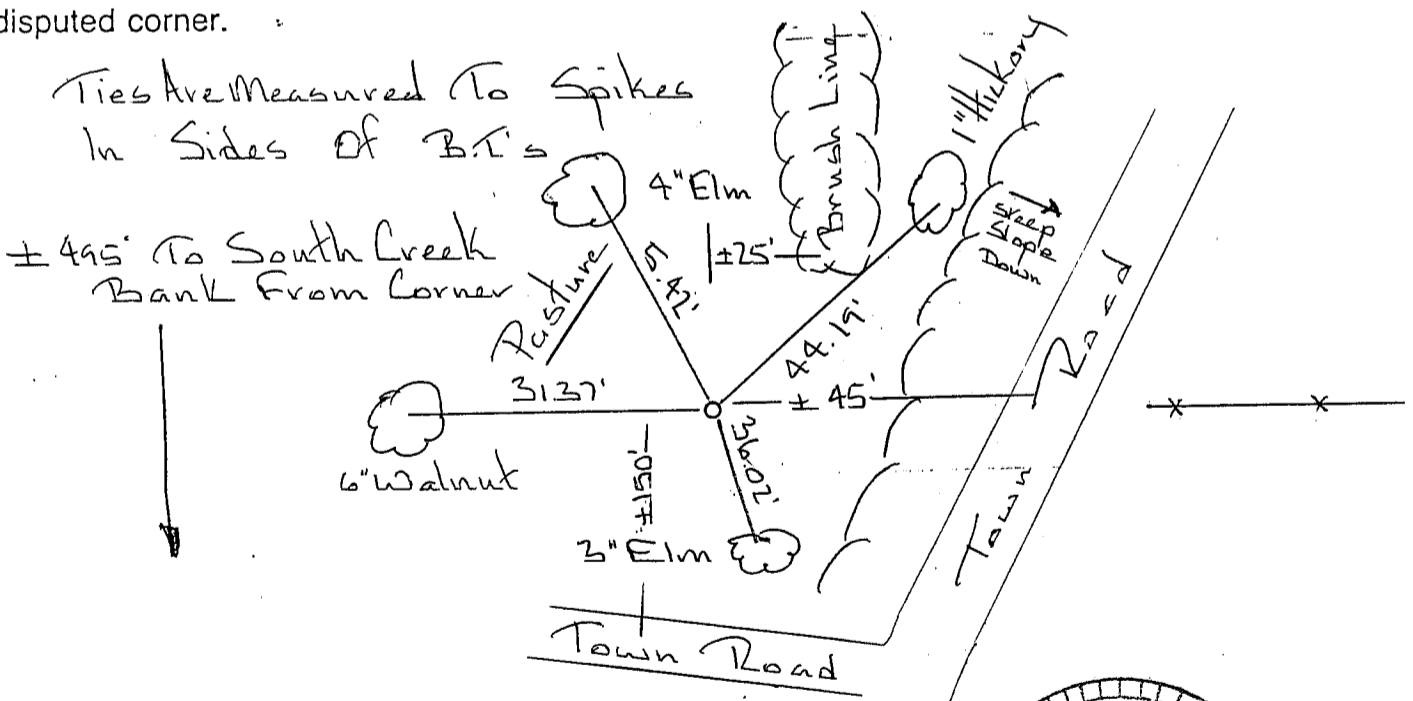 disputed corner.
Ties Are Measured To Spikes
In Sides Of B.T.'s
± 495' To South Creek
Bank From Corner
4" Elm
5.42'
±25'
Brush Line
1" Hickory
Steep
Slope
Down
Pasture
31.37'
44.19'
± 45'
Town Road
6" Walnut
±150'
36.02'
3" Elm
Town Road